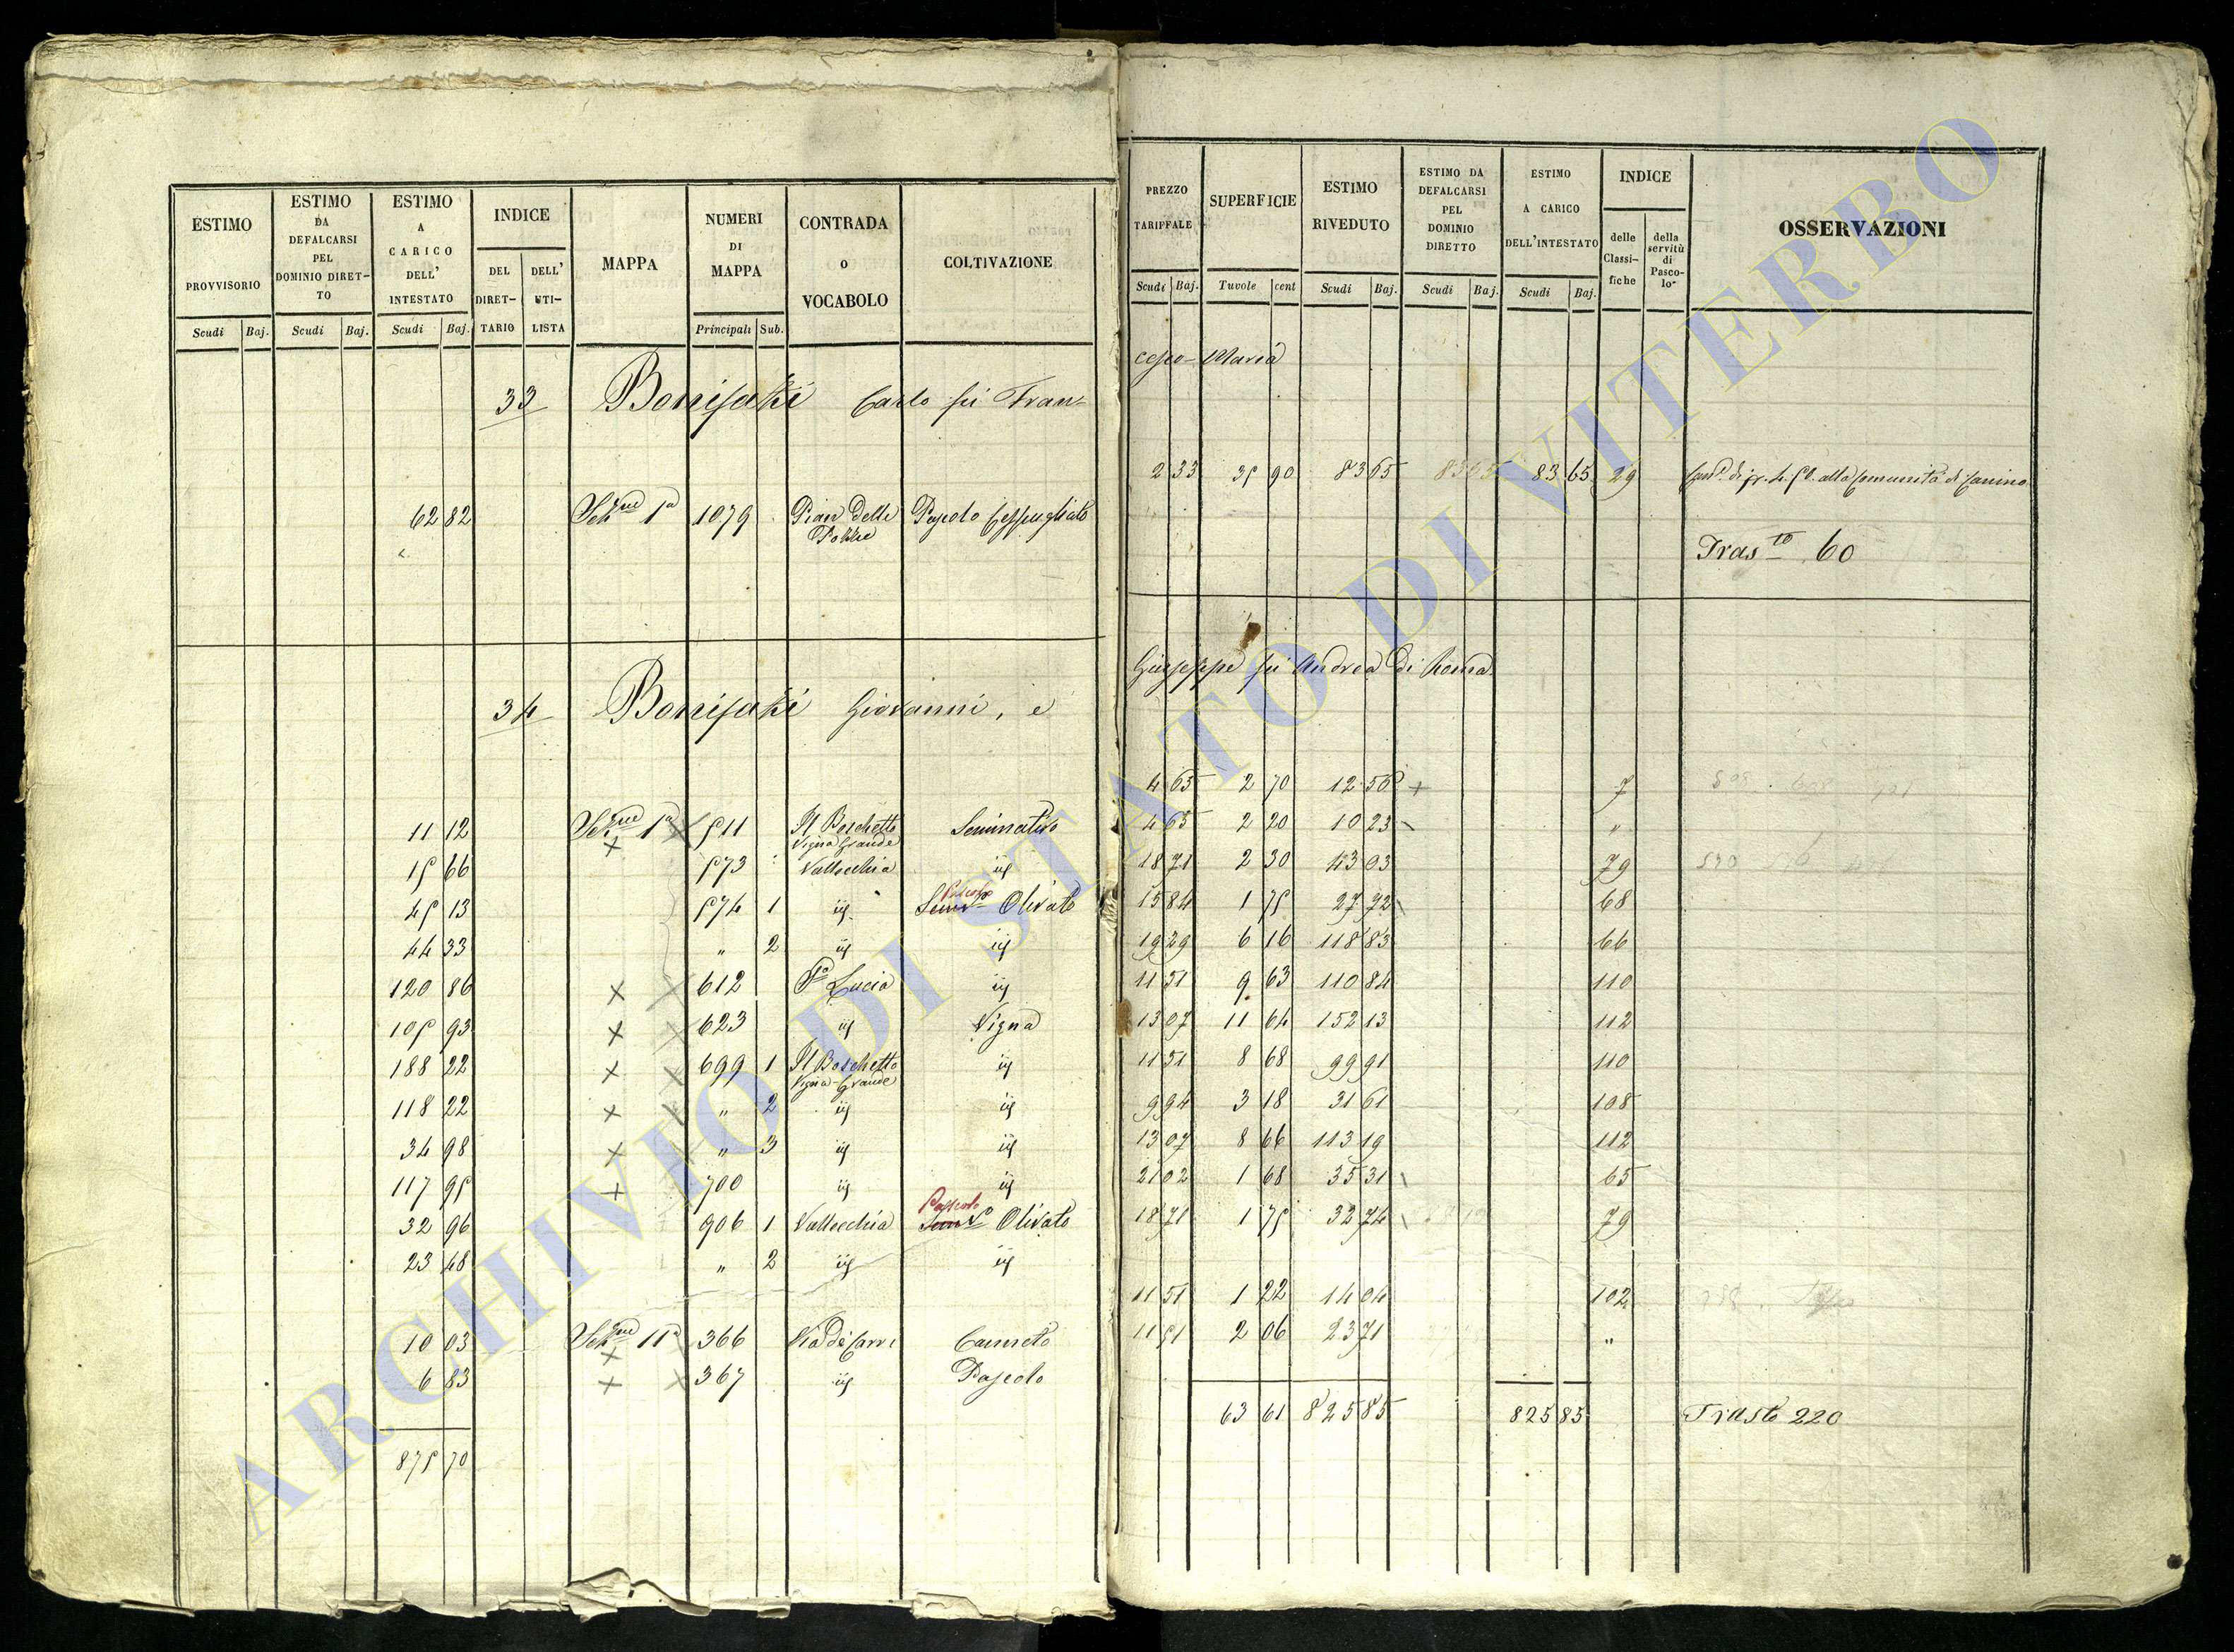 ESTIMO PROVVISORIO
Scudi Baj.
ESTIMO DA DEFALCARSI PEL DOMINIO DIRET-TO
Scudi Baj.
ESTIMO A CARICO DELL' INTESTATO
Scudi Baj.
INDICE
DEL DIRET-TARIO
DELL' UTI-LISTA
MAPPA
NUMERI DI MAPPA
Principali Sub.
CONTRADA o VOCABOLO
COLTIVAZIONE
33 Bonifazi Carlo fu Fran-
62 82 Sez.ne 1a 1079 Pian delle Pascolo Cespugliato
34 Bonifazi Giovanni, e
11 12 Sez.ne 1a 511 Il Boschetto Seminativo
Vigna Grande
15 66 573 Vallecchia iij
Pascolo
45 13 574 1 iij Semvo Olivato
44 33 " 2 iij iij
120 86 612 Sa Lucia iij
105 93 623 iij Vigna
188 22 699 1 Il Boschetto iij
Vigna Grande
118 22 " 2 iij iij
34 98 " 3 iij iij
117 95 700 iij iij
Pascolo
32 96 906 1 Vallecchia Semvo Olivato
23 48 " 2 iij iij
10 03 Sez.ne 11a 366 Via de Carri Canneto
6 83 367 iij Pascolo
875 70
PREZZO TARIFFALE
Scudi Baj.
SUPERFICIE
Tavole cent
ESTIMO RIVEDUTO
Scudi Baj.
ESTIMO DA DEFALCARSI PEL DOMINIO DIRETTO
Scudi Baj.
ESTIMO A CARICO DELL'INTESTATO
Scudi Baj.
INDICE
delle Classi-fiche
della servitù di Pasco-lo
OSSERVAZIONI
cesco Maria
2 33 35 90 83 65 83 65 83 65 29 alla Comunità di Canino
Tras.to 60
Giuseppe fu Andrea di Roma
4 65 2 70 12 56 7
4 65 2 20 10 23 "
18 71 2 30 43 03 79
15 84 1 75 27 72 68
19 29 6 16 118 83 66
11 51 9 63 110 84 110
13 07 11 64 152 13 112
11 51 8 68 99 91 110
9 94 3 18 31 61 108
13 07 8 66 113 19 112
21 02 1 68 35 31 65
18 71 1 75 32 74 79
11 51 1 22 14 04 102
11 51 2 06 23 71 "
63 61 825 85 825 85 Trasto 220
ARCHIVIO DI STATO DI VITERBO